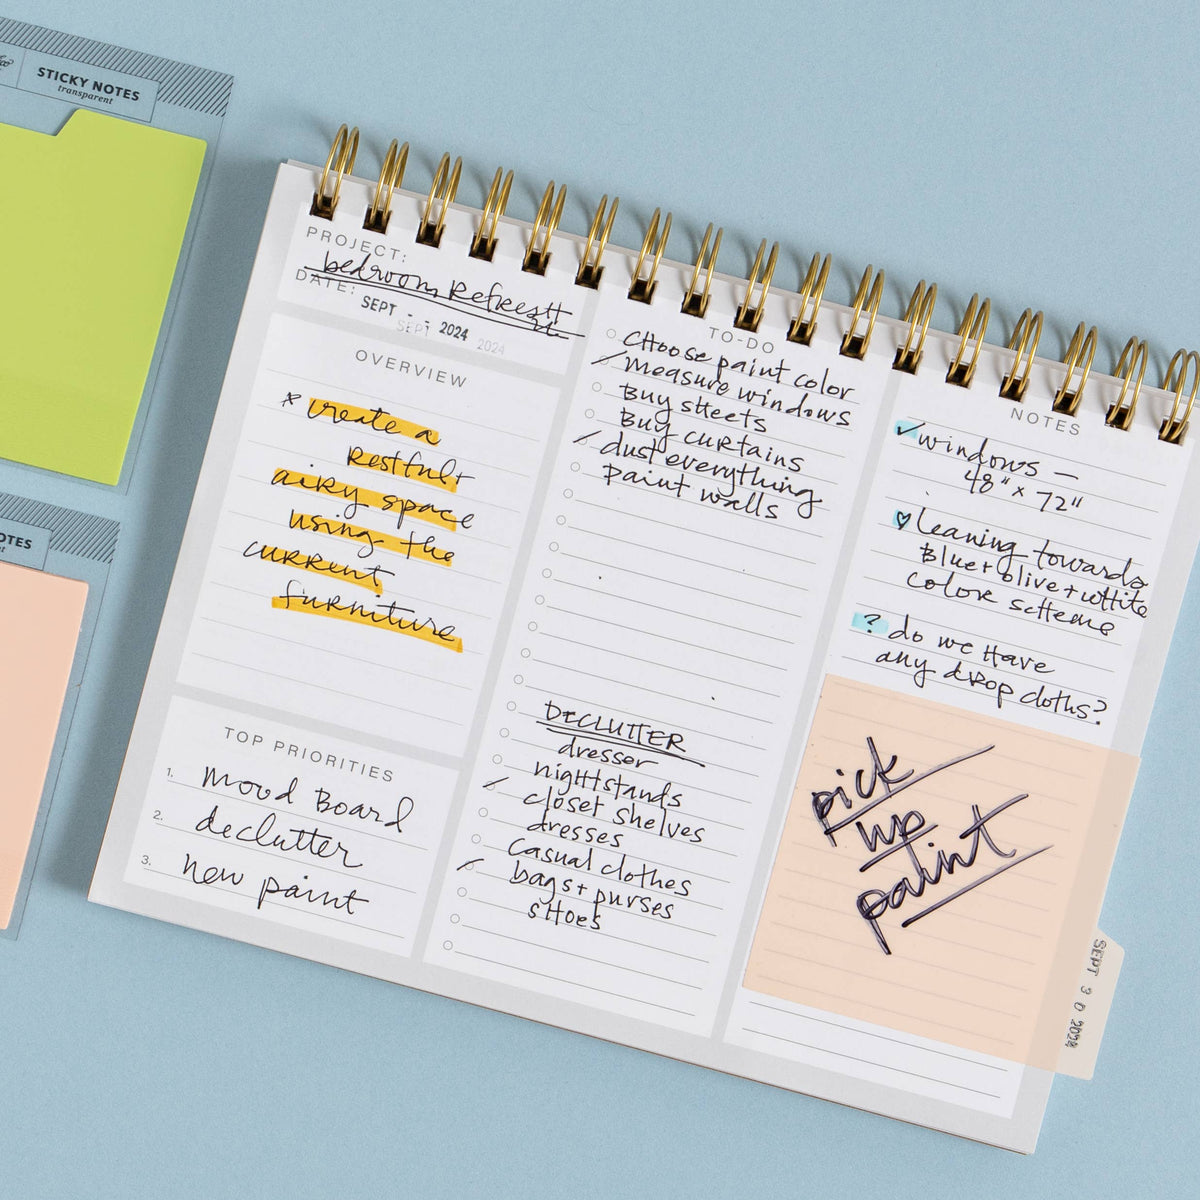 STICKY NOTES
transparent
NOTES
PROJECT:
bedroom Refresh
DATE:
SEPT - - 2024
SEPT 2024
OVERVIEW
* create a
Restful +
airy space
using the
current
furniture
TOP PRIORITIES
1. Mood Board
2. declutter
3. new paint
TO-DO
Choose paint color
Measure windows
Buy sheets
Buy curtains
dust everything
paint walls
DECLUTTER
dresser
nightstands
closet shelves
dresses
casual clothes
bags + purses
shoes
NOTES
✓ windows —
48" x 72"
♡ leaning towards
Blue + olive + white
color scheme
? do we have
any drop cloths?
pick
up
paint
SEPT 3 0 2024